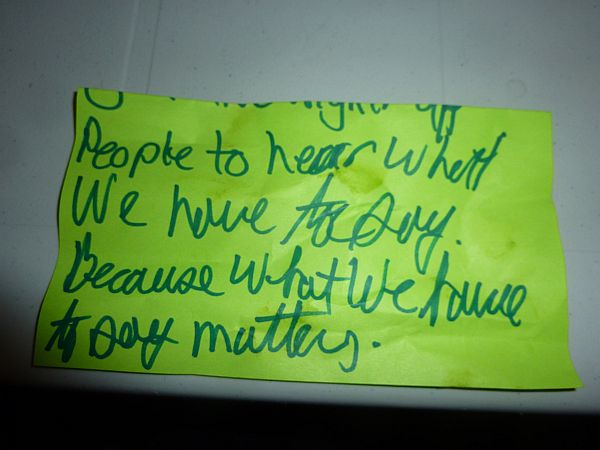 People to hear what
We have to say.
Because what we have
to say matters.